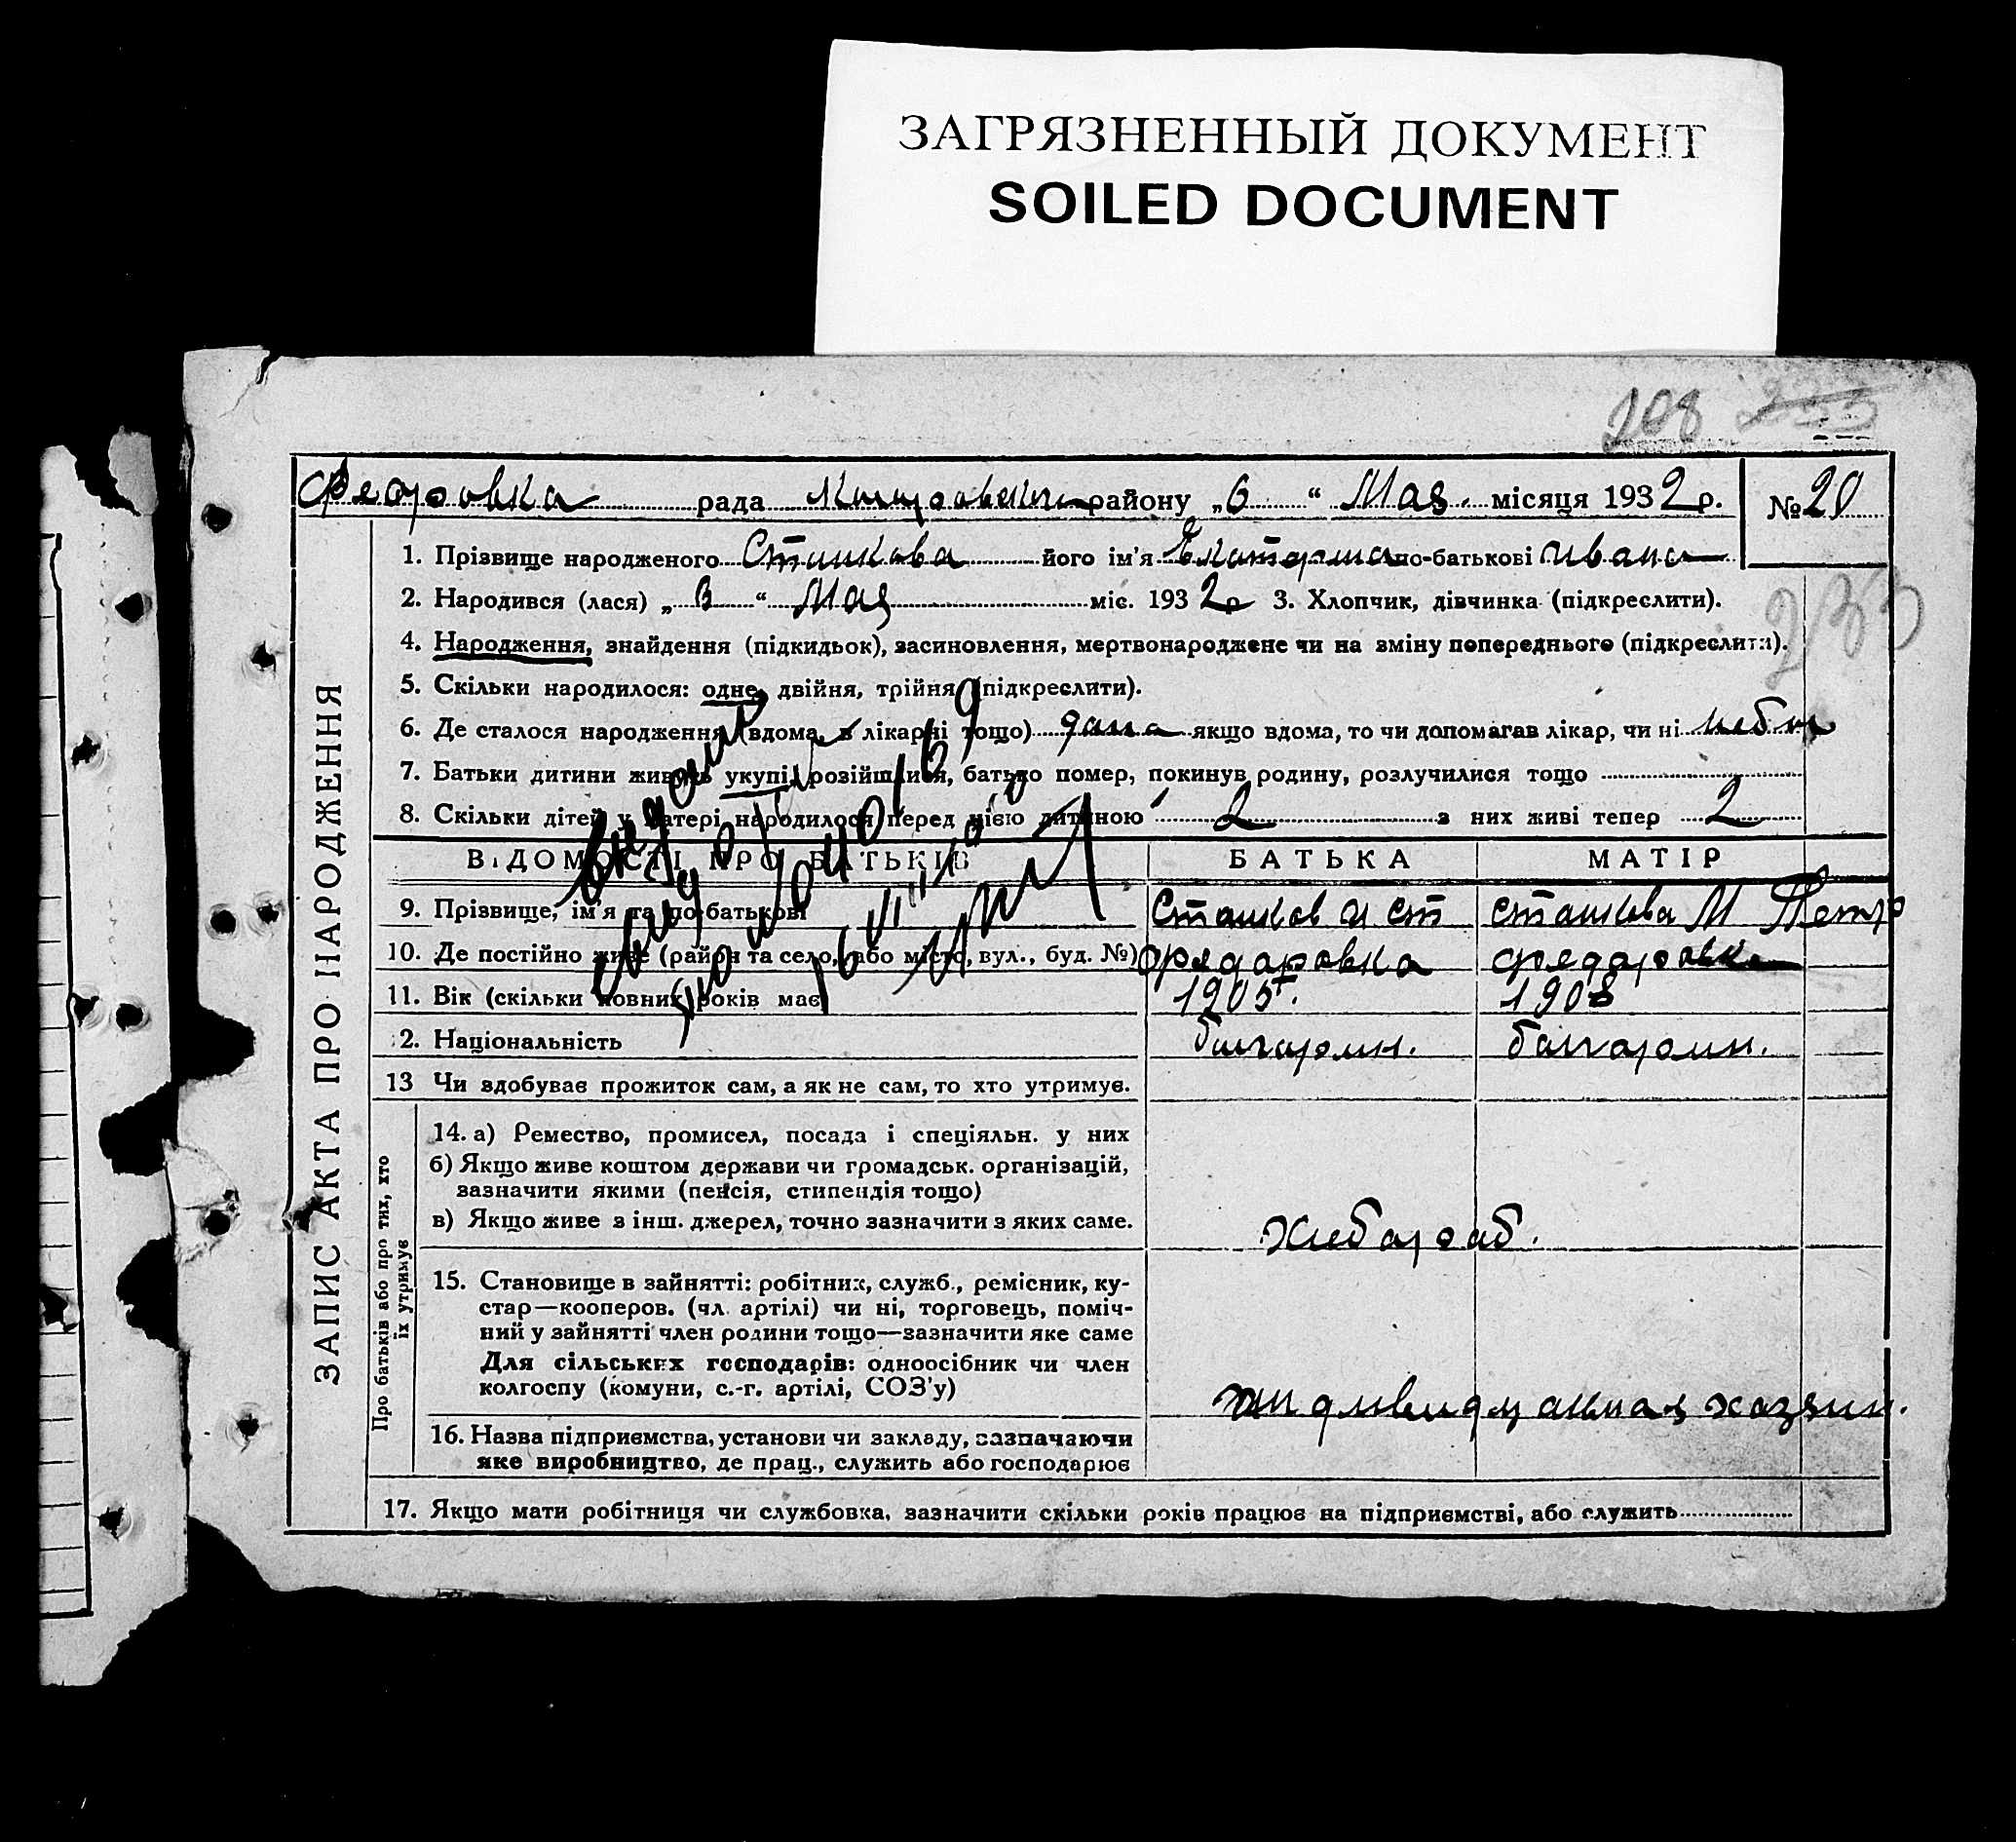 ЗАГРЯЗНЕННЫЙ ДОКУМЕНТ
SOILED DOCUMENT
208 233
Федоровка рада району „6“ Мая місяця 1932 р. № 20
ЗАПИС АКТА ПРО НАРОДЖЕННЯ
1. Прізвище народженого Сташкова його ім'я Екатерина по-батькові Ивана
2. Народився (лася) „ “ Мая міс. 1932 р 3. Хлопчик, дівчинка (підкреслити).
233
4. Народження, знайдення (підкидьок), засиновлення, мертвонароджене чи на зміну попереднього (підкреслити).
5. Скільки народилося: одне, двійня, трійня (підкреслити).
6. Де сталося народження (вдома, в лікарні тощо) дома якщо вдома, то чи допомагав лікар, чи ні небил
7. Батьки дитини живуть укупі, розійшлися, батько помер, покинув родину, розлучилися тощо
8. Скільки дітей у матері народилося перед цією дитиною 2 з них живі тепер 2
ВІДОМОСТІ ПРО БАТЬКІВ БАТЬКА МАТІР
9. Прізвище, ім'я та по-батькові Сташков И Ст Сташкова М Петро
10. Де постійно живе (район та село, або місто, вул., буд. №) Федаровка Федаровка
11. Вік (скільки повних років має) 1905 1908
12. Національність болгарин. болгарин.
13 Чи здобуває прожиток сам, а як не сам, то хто утримує.
Про батьків або про тих, хто
їх утримує
14. а) Ремество, промисел, посада і спеціяльн. у них
б) Якщо живе коштом держави чи громадськ. організацій,
зазначити якими (пенсія, стипендія тощо)
в) Якщо живе з інш. джерел, точно зазначити з яких саме.
хлебороб.
15. Становище в зайнятті: робітник, служб., ремісник, ку-
стар—кооперов. (чл. артілі) чи ні, торговець, поміч-
ний у зайнятті член родини тощо—зазначити яке саме
Для сільських господарів: одноосібник чи член
колгоспу (комуни, с.-г. артілі, СОЗ'у)
индивидуальная хозяин.
16. Назва підприємства, установи чи закладу, зазначаючи
яке виробництво, де прац., служить або господарює
17. Якщо мати робітниця чи службовка, зазначити скільки років працює на підприємстві, або служить